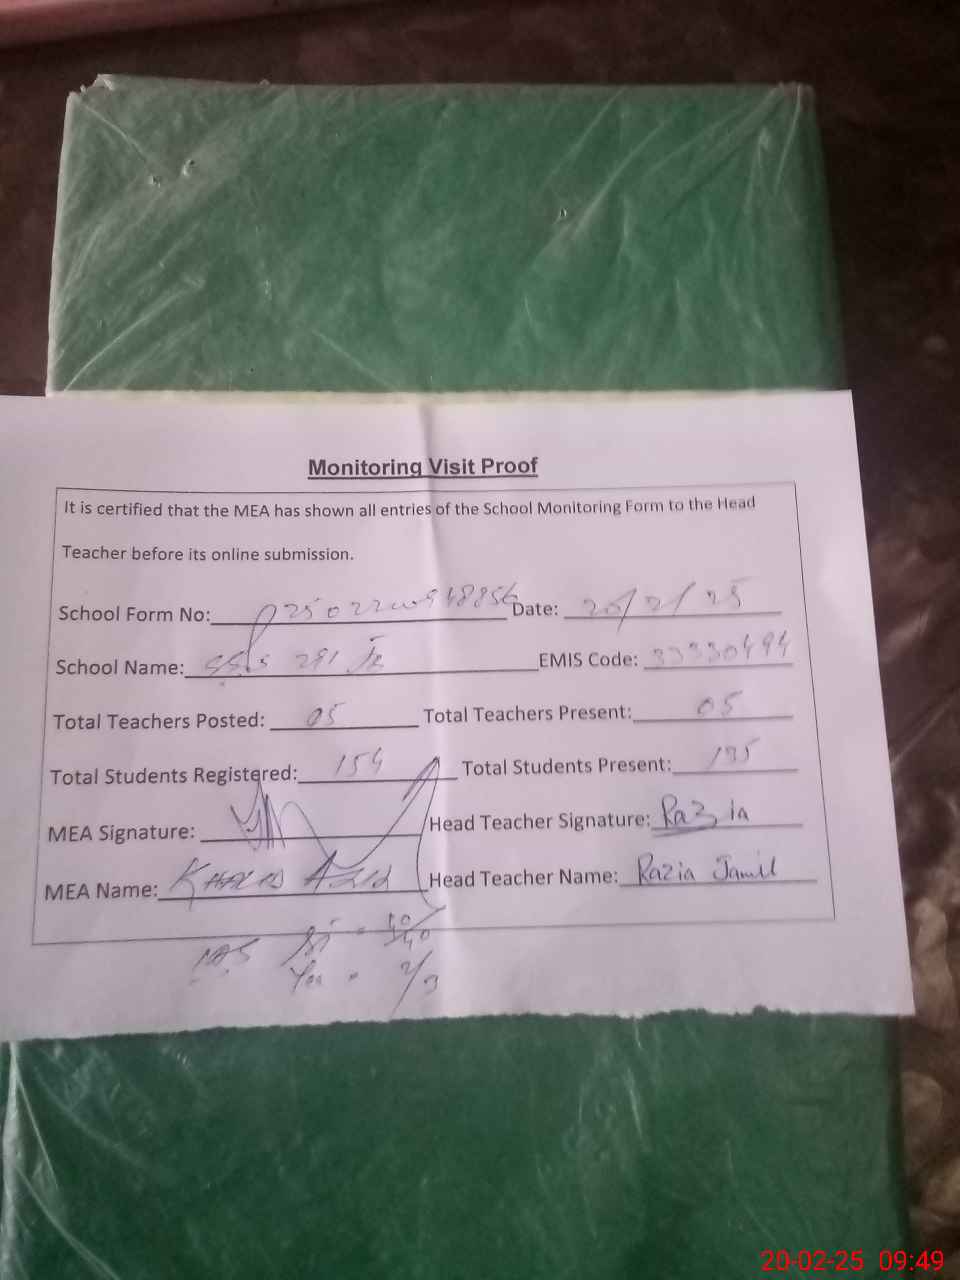 Monitoring Visit Proof
It is certified that the MEA has shown all entries of the School Monitoring Form to the Head
Teacher before its online submission.
School Form No: Date: 20/2/25
School Name: 291 EMIS Code: 33330494
Total Teachers Posted: 05 Total Teachers Present: 05
Total Students Registered: 154 Total Students Present:
MEA Signature: Head Teacher Signature: Razia
MEA Name: Head Teacher Name: Razia Jamil
20-02-25 09:49